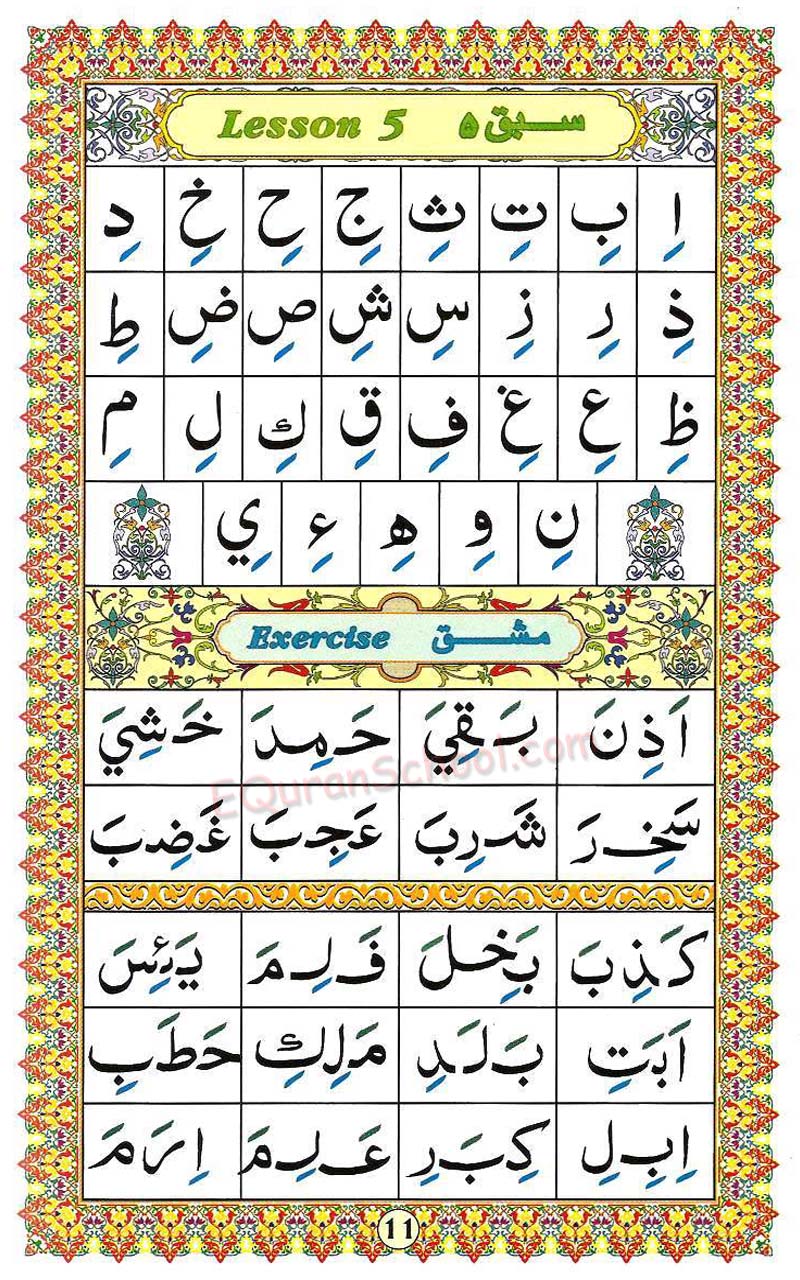 Lesson 5 سبق ٥
اِ بِ تِ ثِ جِ حِ خِ دِ
ذِ رِ زِ سِ شِ صِ ضِ طِ
ظِ عِ غِ فِ قِ كِ لِ مِ
نِ وِ هِ ءِ يِ
Exercise مشق
اَذِنَ بَقِيَ حَمِدَ خَشِيَ
سَخِرَ شَرِبَ عَجِبَ غَضِبَ
كَذِبَ بَخِلَ فَلِمَ يَئِسَ
اَبَتِ بَلَدِ مَلِكِ حَطَبِ
اِبِلِ كِبَرِ عَلِمَ اِرَمَ
EQuranSchool.com
11